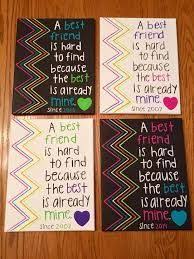 A best
friend
is hard
to find
because
the best
is already
mine.
since
A best
friend
is hard
to find
because
the best
is already
mine.
since 2007
A best
friend
is hard
to find
because
the best
is already
mine.
since
A best
friend
is hard
to find
because
the best
is already
mine.
since